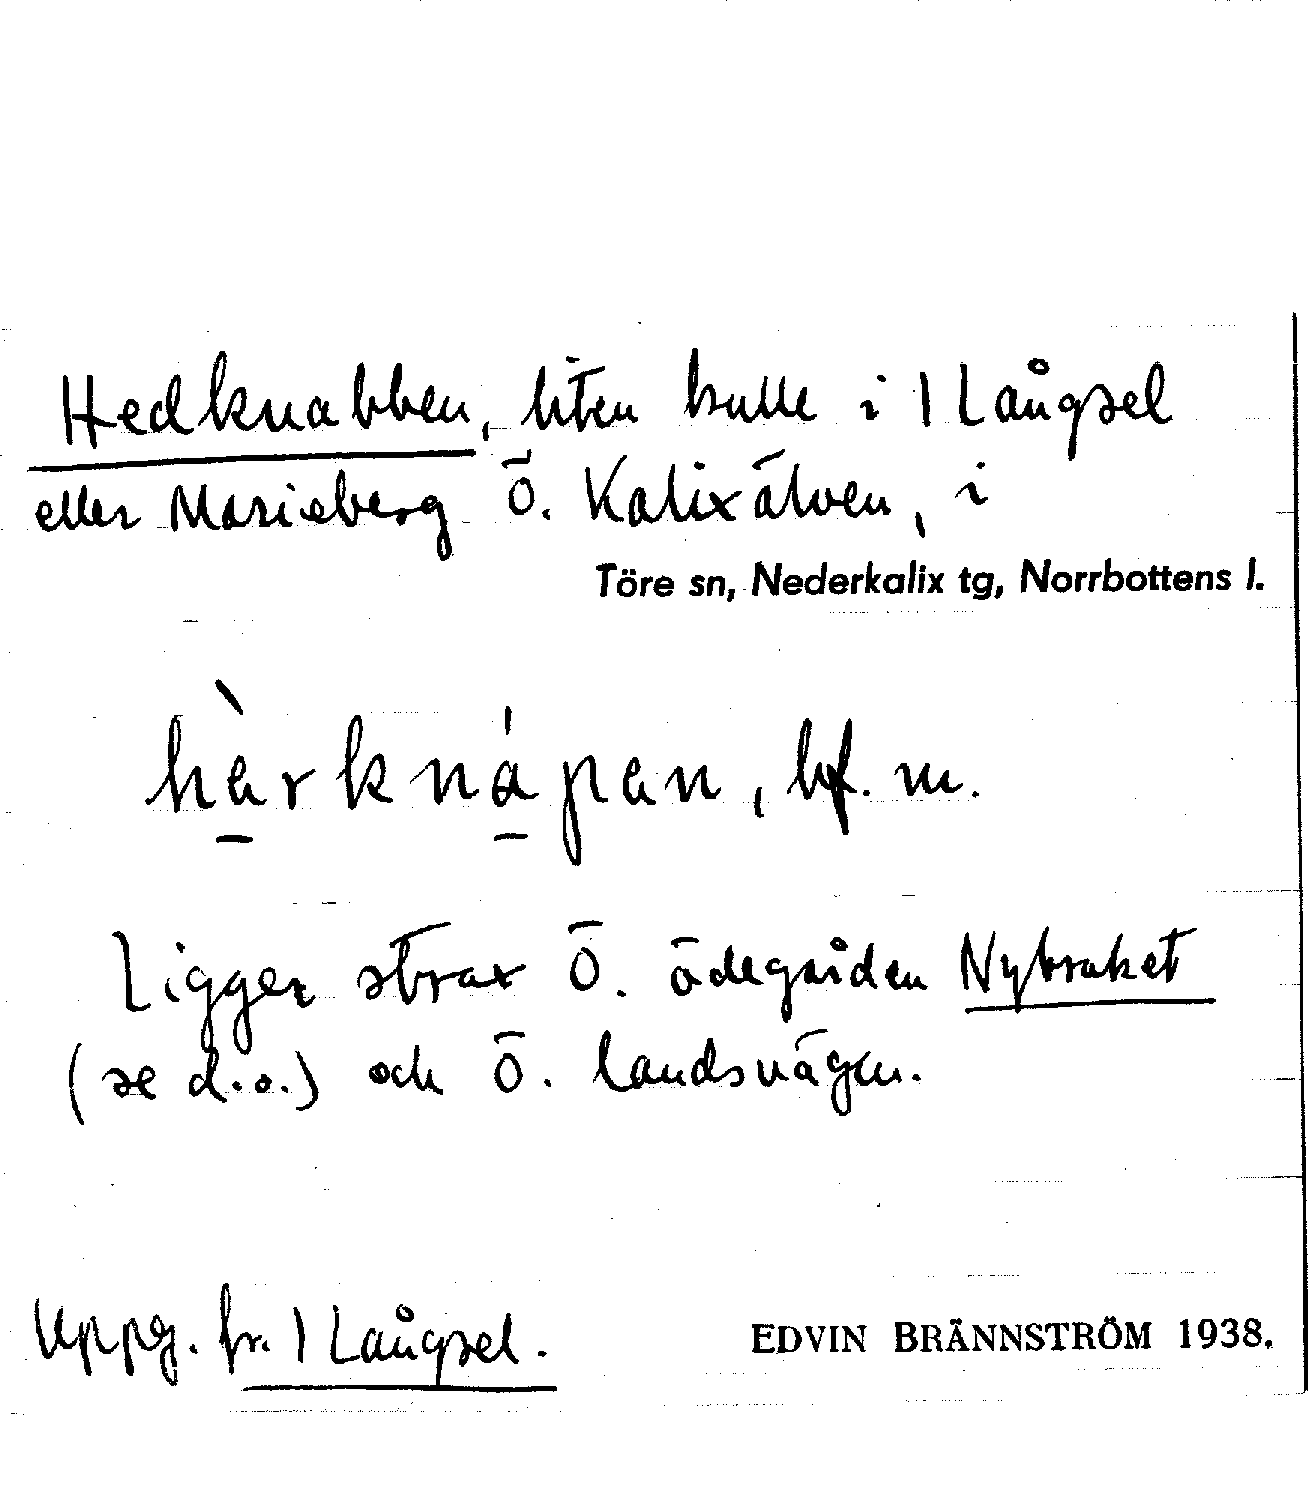 Hedknabben, liten kulle i 1 Långsel
eller Marieberg Ö. Kalixälven, i
Töre sn, Nederkalix tg, Norrbottens l.
hàrknápan, bf. m.
Ligger strax Ö. ödegården Nybraket
(se d.o.) och Ö. landsvägen.
Uppg. fr. 1 Långsel.
EDVIN BRÄNNSTRÖM 1938.